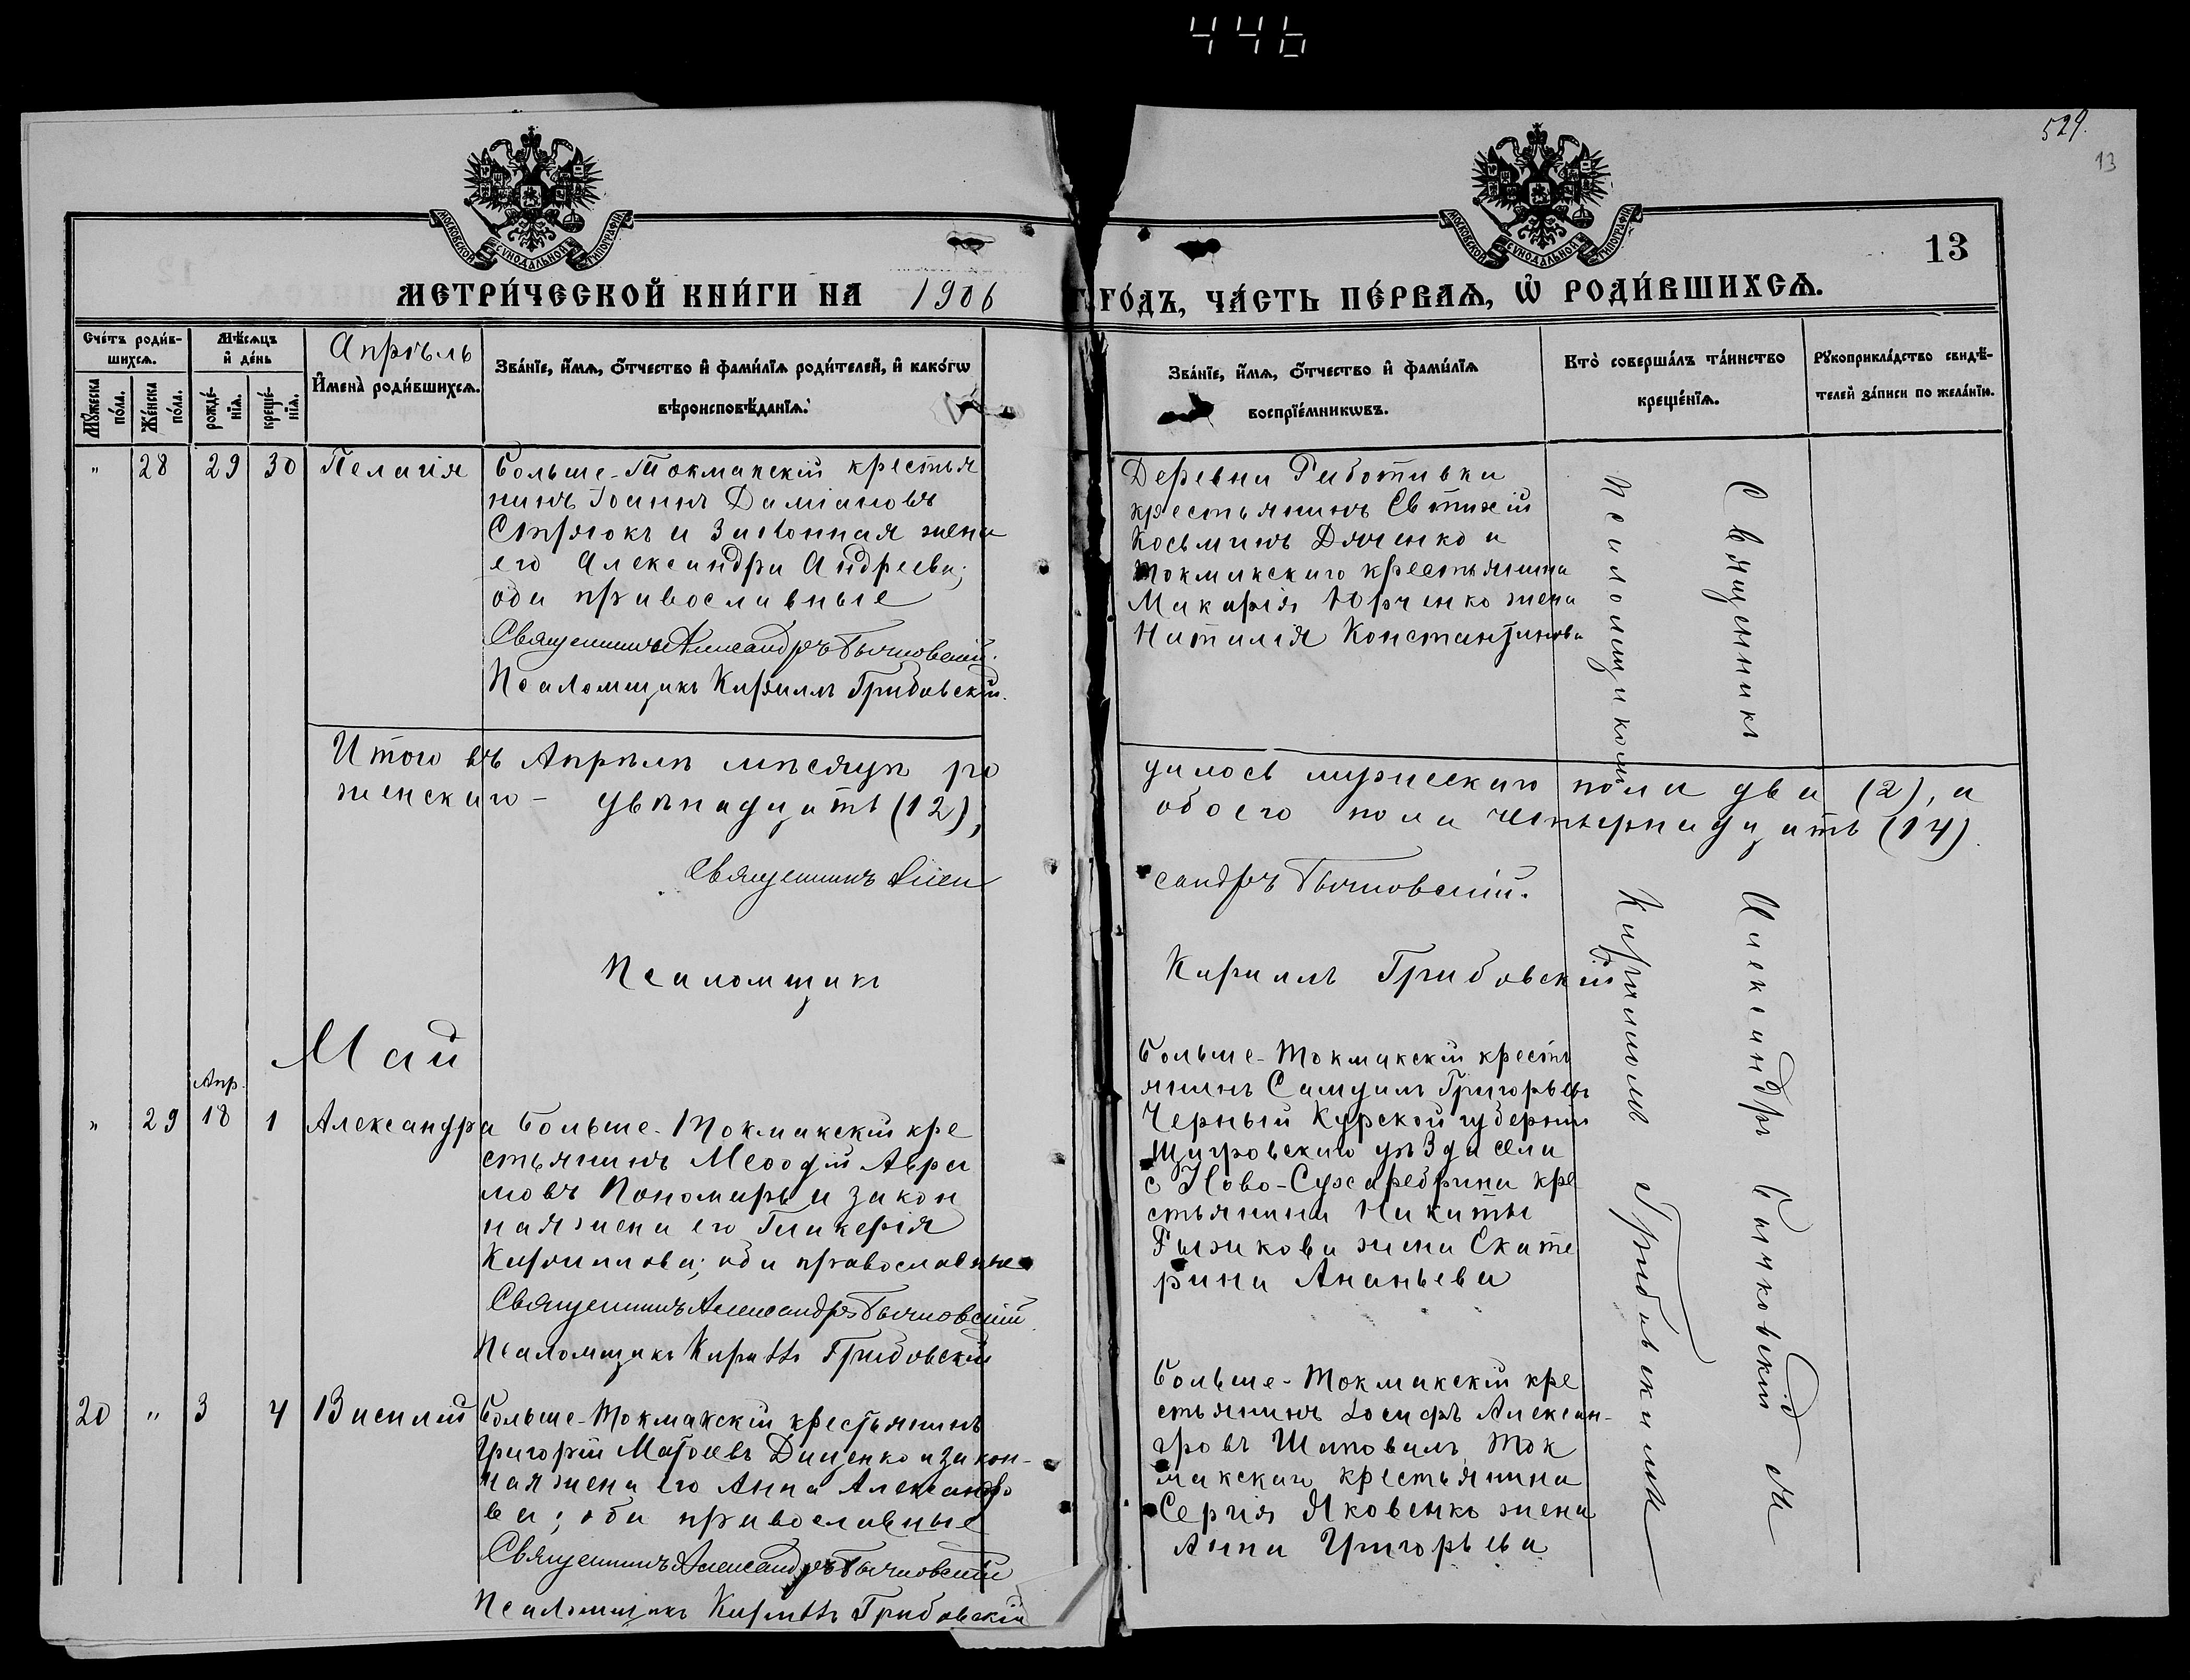 446
529.
13
13
МОСКОВСКОЙ СѴНОДАЛЬНОЙ ТИПОГРАФІИ
МОСКОВСКОЙ СѴНОДАЛЬНОЙ ТИПОГРАФІИ
МЕТРИ́ЧЕСКОЙ КНИ́ГИ НА 1906 ГО́ДЪ, ЧА́СТЬ ПЕ́РВАѦ, Ѡ҆ РОДИ́ВШИХСѦ.
Сче́тъ роди́в-
шихсѧ.
Мꙋ́жеска по́ла.
Же́нска по́ла.
Мѣ́сѧцъ и҆ де́нь
рожде́-нїѧ.
креще́-нїѧ.
Апрѣль
И҆мена̀ роди́вшихсѧ.
Зва́нїе, и҆́мѧ, ѻ҆́тчество и҆ фами́лїѧ роди́телей, и҆ како́гѡ
вѣроисповѣ́данїѧ.
Зва́нїе, и҆́мѧ, ѻ҆́тчество и҆ фами́лїѧ
воспрїе́мникѡвъ.
Кто̀ соверша́лъ та́инство
креще́нїѧ.
Рꙋкоприкла́дство свидѣ́-
телей за́писи по жела́нїю.
" 28 29 30 Пелагія
Больше-Токмакскій крестья
нинъ Іоаннъ Даміановъ
Стрюкъ и законная жена
его Александра Андреева;
оба православные
Священникъ Александръ Бычковскій.
Псаломщикъ Кириллъ Грибовскій.
Деревни
крестьянинъ Евтихій
Косьминъ Дяченко и
Токмакскаго крестьянина
Макарія Юрченко жена
Наталія Константинова
Итого въ Апрѣлѣ мѣсяцѣ ро
дилось мужескаго пола два (2), а
женскаго - двѣнадцать (12),
обоего пола четырнадцать (14).
Священникъ Алек
сандръ Бычковскій.
Псаломщикъ
Кириллъ Грибовскій
Май
Апр.
" 29 18 1 Александра
Больше-Токмакскій кре
стьянинъ Меѳодій Авра
мовъ Пономарь и закон
ная жена его Гликерія
Кириллова; оба православные
Священникъ Александръ Бычковскій
Псаломщикъ Кириллъ Грибовскій
Больше-Токмакскій кресть
янинъ Самуилъ Григорьевъ
Черный Курской губерніи
Щигровскаго уѣзда села
Ново- кре
стьянина Никиты
Рыжкова жена Екате
рина Ананьева
20 " 3 4 Василій
Больше-Токмакскій крестьянинъ
Григорій Матѳеевъ Даценко и закон-
ная жена его Анна Александро
ва; оба православные
Священникъ Александръ Бычковскій
Псаломщикъ Кириллъ Грибовскій
Больше-Токмакскій кре
стьянинъ Іосифъ Алексан-
дровъ Шаповалъ, Ток
макскаго крестьянина
Сергія Яковенко жена
Анна Григорьева
Священникъ Александръ Бычковскій съ
псаломщикомъ Кирилломъ Грибовскимъ